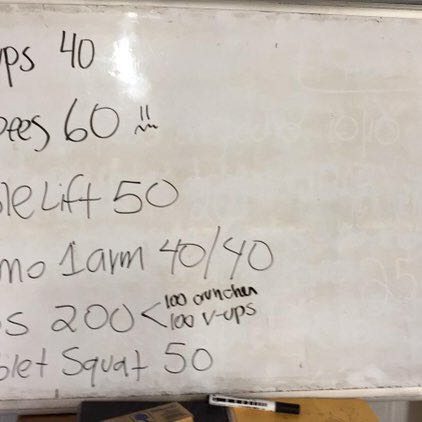 ups 40
pees 60
ble Lift 50
mo 1arm 40/40
bs 200 < 100 crunches
100 V-ups
blet Squat 50